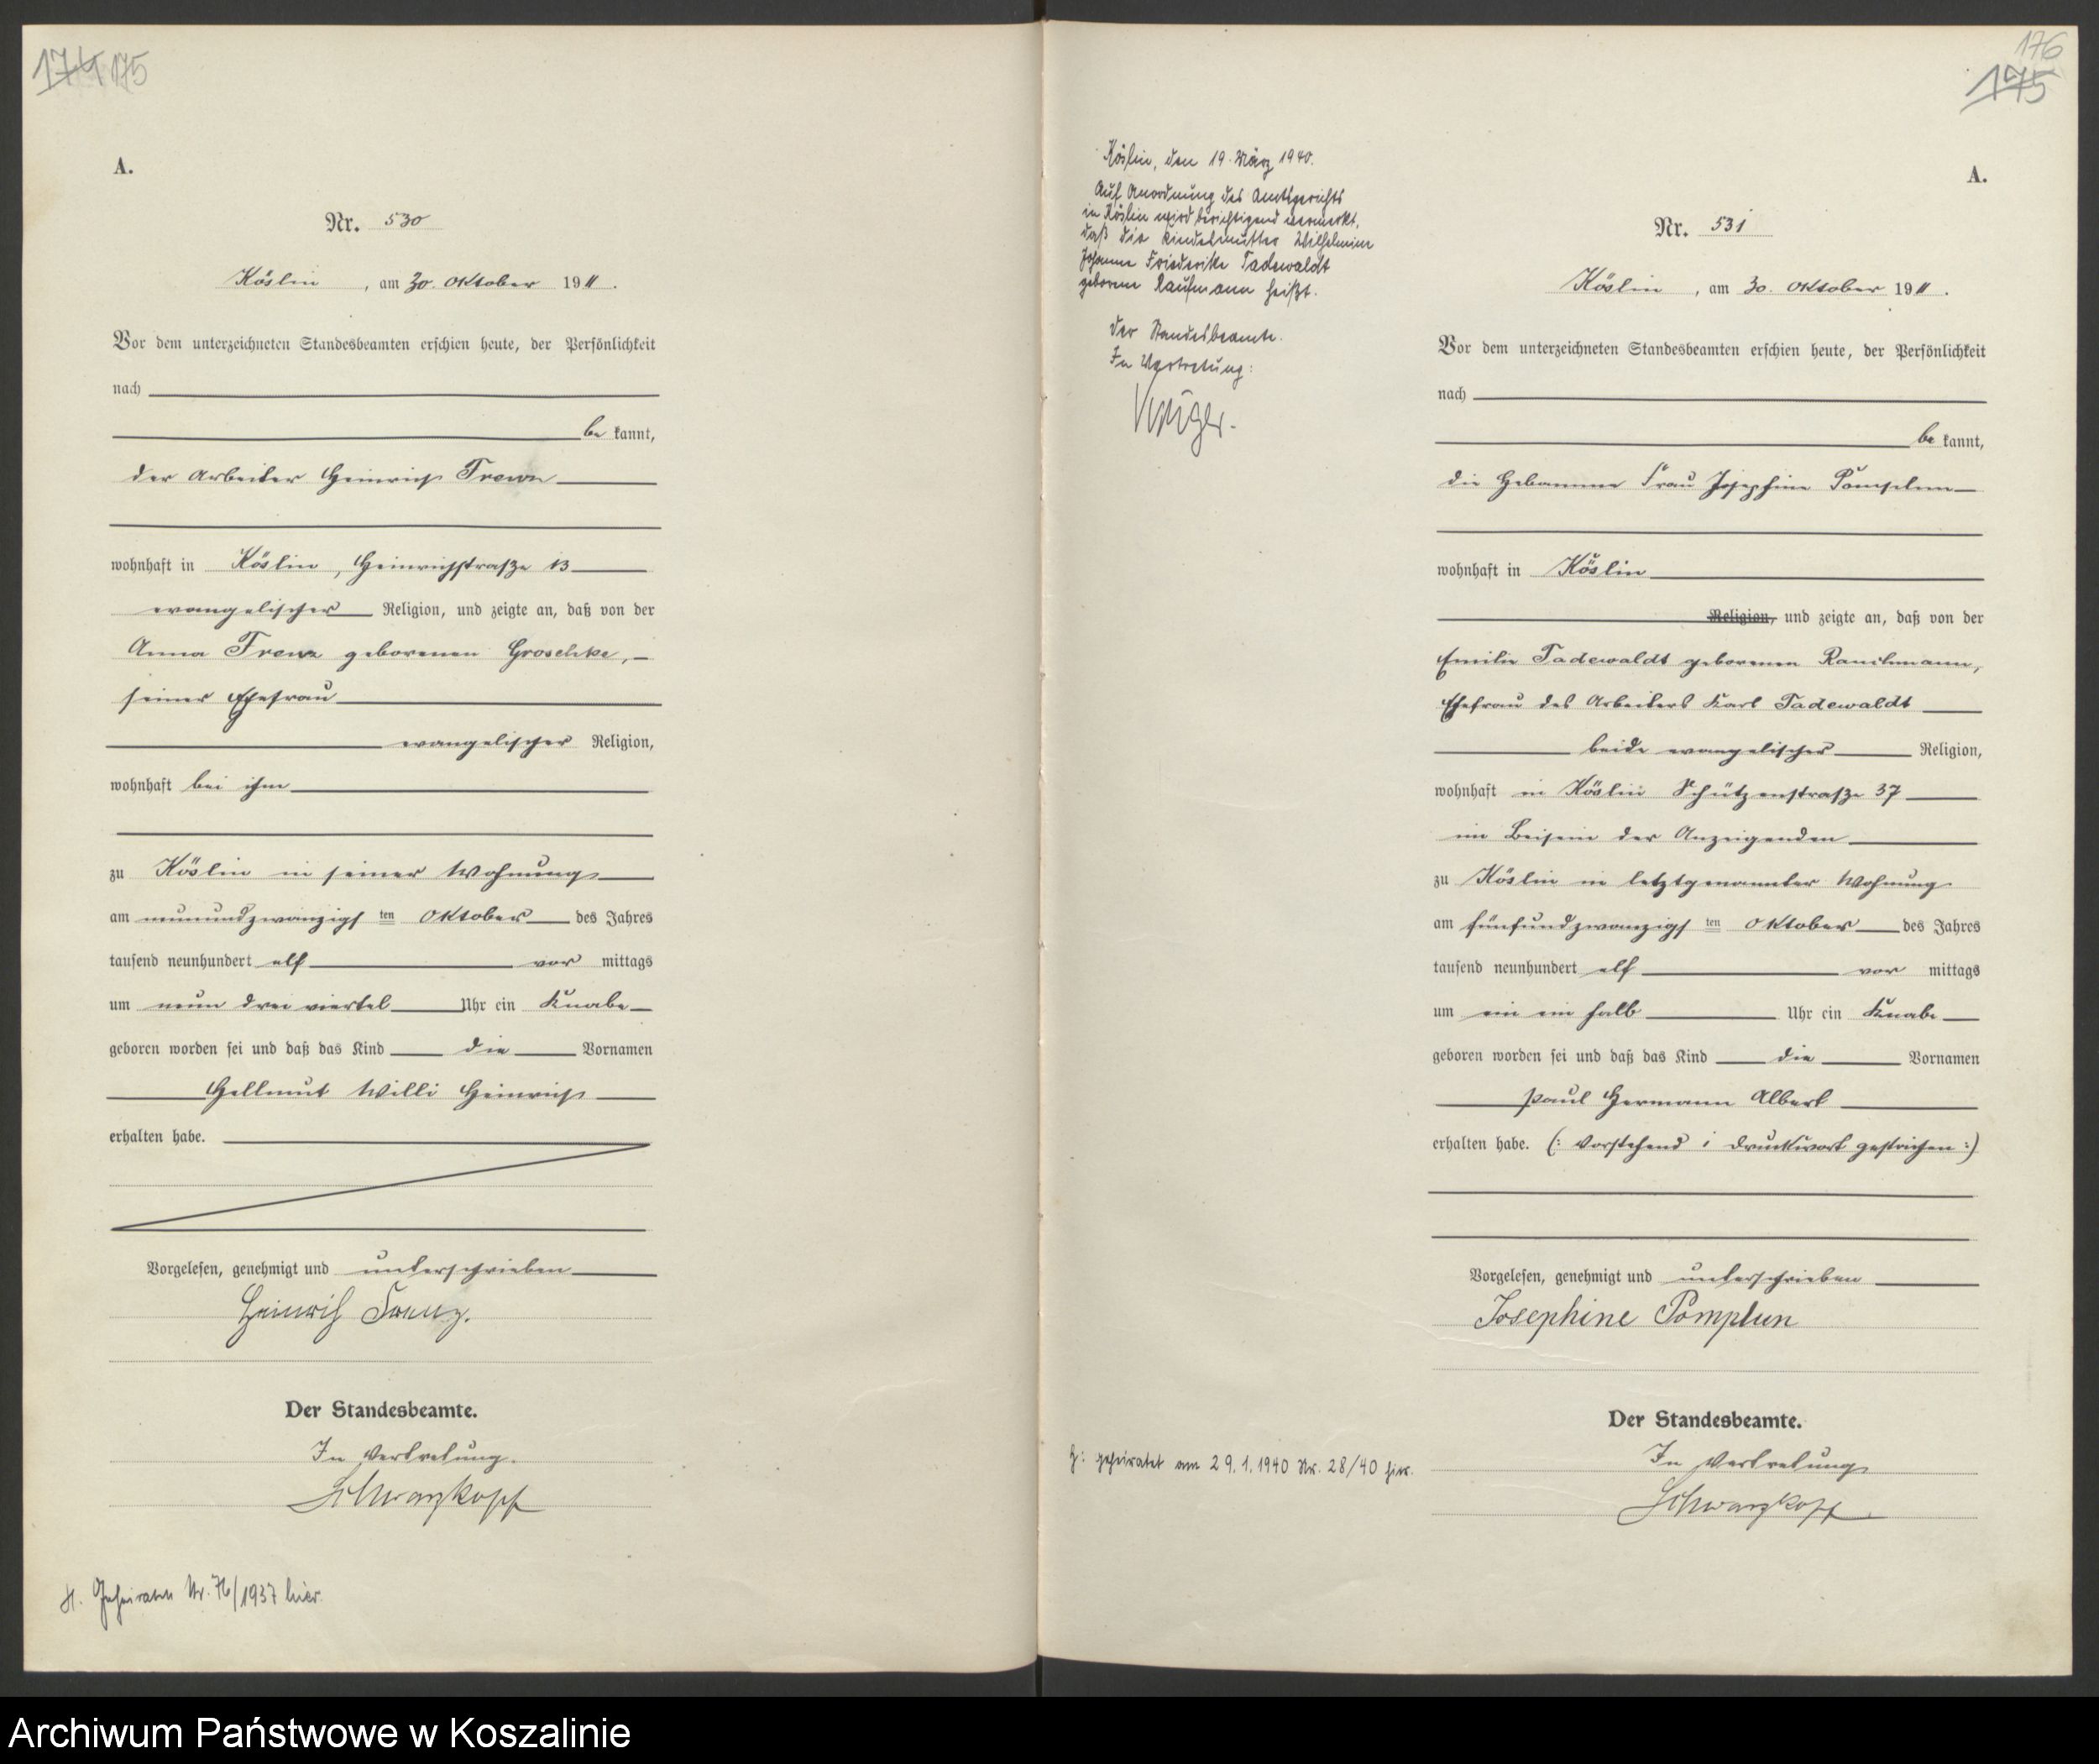 174 175
A.
Nr. 530
Köslin, am 30. Oktober 1911.
Vor dem unterzeichneten Standesbeamten erschien heute, der Persönlichkeit
nach
be kannt,
der Arbeiter Heinrich
wohnhaft in Köslin, Heinrichstraße 13
evangelischer Religion, und zeigte an, daß von der
Anna geborenen Groschke,
seiner Ehefrau
evangelischer Religion,
wohnhaft bei ihm
zu Köslin in seiner Wohnung
am neunundzwanzigsten Oktober des Jahres
tausend neunhundert elf vor mittags
um neun drei viertel Uhr ein Knabe
geboren worden sei und daß das Kind die Vornamen
Hellmut Willi Heinrich
erhalten habe.
Vorgelesen, genehmigt und unterschrieben
Heinrich Frenz.
Der Standesbeamte.
In Vertretung.
Schwarzkopf
H. Geheiratet Nr. 76/1937 hier.
176
175
Köslin, den 19. März 1940.
Auf Anordnung des Amtsgerichts
in Köslin wird berichtigend vermerkt,
daß die Kindesmutter Wilhelmine
Johanne Friederike Tadewaldt
geborene Raufmann heißt.
Der Standesbeamte.
In Vertretung:
Krüger.
A.
Nr. 531
Köslin, am 30. Oktober 1911.
Vor dem unterzeichneten Standesbeamten erschien heute, der Persönlichkeit
nach
be kannt,
die Hebamme Frau Josephine Pomplun
wohnhaft in Köslin
Religion, und zeigte an, daß von der
Emilie Tadewaldt geborenen
Ehefrau des Arbeiters Karl Tadewaldt
beide evangelischer Religion,
wohnhaft in Köslin Schützenstraße 37
im Beisein der Anzeigenden
zu Köslin in letztgenannter Wohnung
am fünfundzwanzigsten Oktober des Jahres
tausend neunhundert elf vor mittags
um ein ein halb Uhr ein Knabe
geboren worden sei und daß das Kind die Vornamen
Paul Hermann Albert
erhalten habe. (: Vorstehend 1 Druckwort gestrichen :)
Vorgelesen, genehmigt und unterschrieben
Josephine Pomplun
Der Standesbeamte.
In Vertretung
Schwarzkopf
H: geheiratet am 29.1.1940 Nr. 28/40 hier.
Archiwum Państwowe w Koszalinie